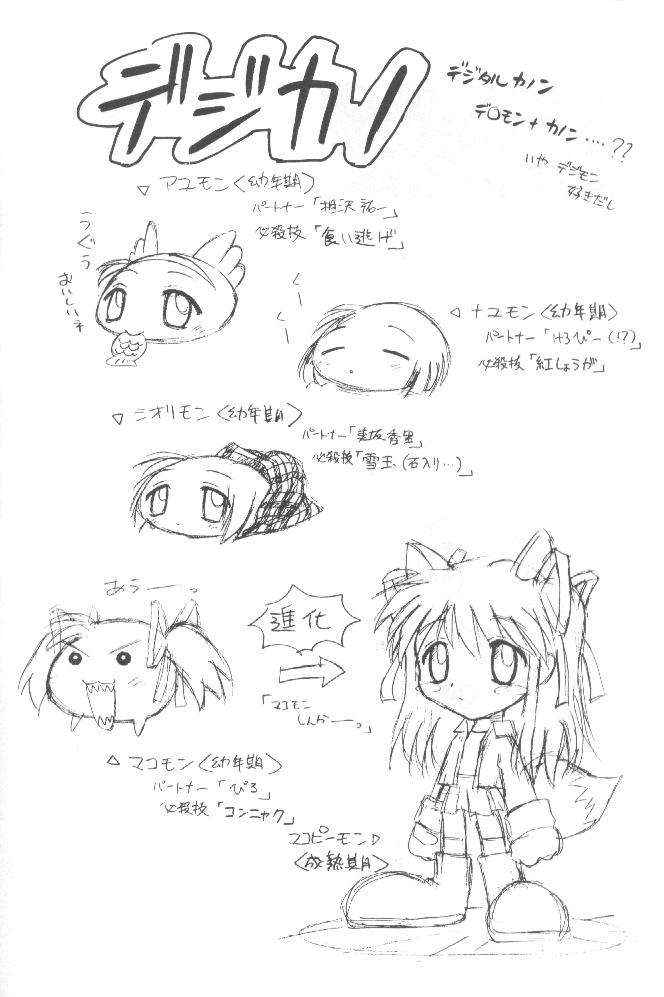 デジカノ
デジタルカノン
デ○モン+カノン‥‥??
いや デジモン
好きだし
▽ アユモン〈幼年期〉
パートナー「相沢祐一」
必殺技「食い逃げ」
うぐぅ
おいしいネ
くー
くー
◁ ナユモン〈幼年期〉
パートナー「けろぴー(17)」
必殺技「紅しょうが」
▽ シオリモン〈幼年期〉
パートナー「美坂香里」
必殺技「雪玉(石入り…)」
あぅーっ
進化
「マコモン
しんかーっ。」
△ マコモン〈幼年期〉
パートナー「ぴろ」
必殺技「コンニャク」
マコピーモン♪
〈成熟期〉